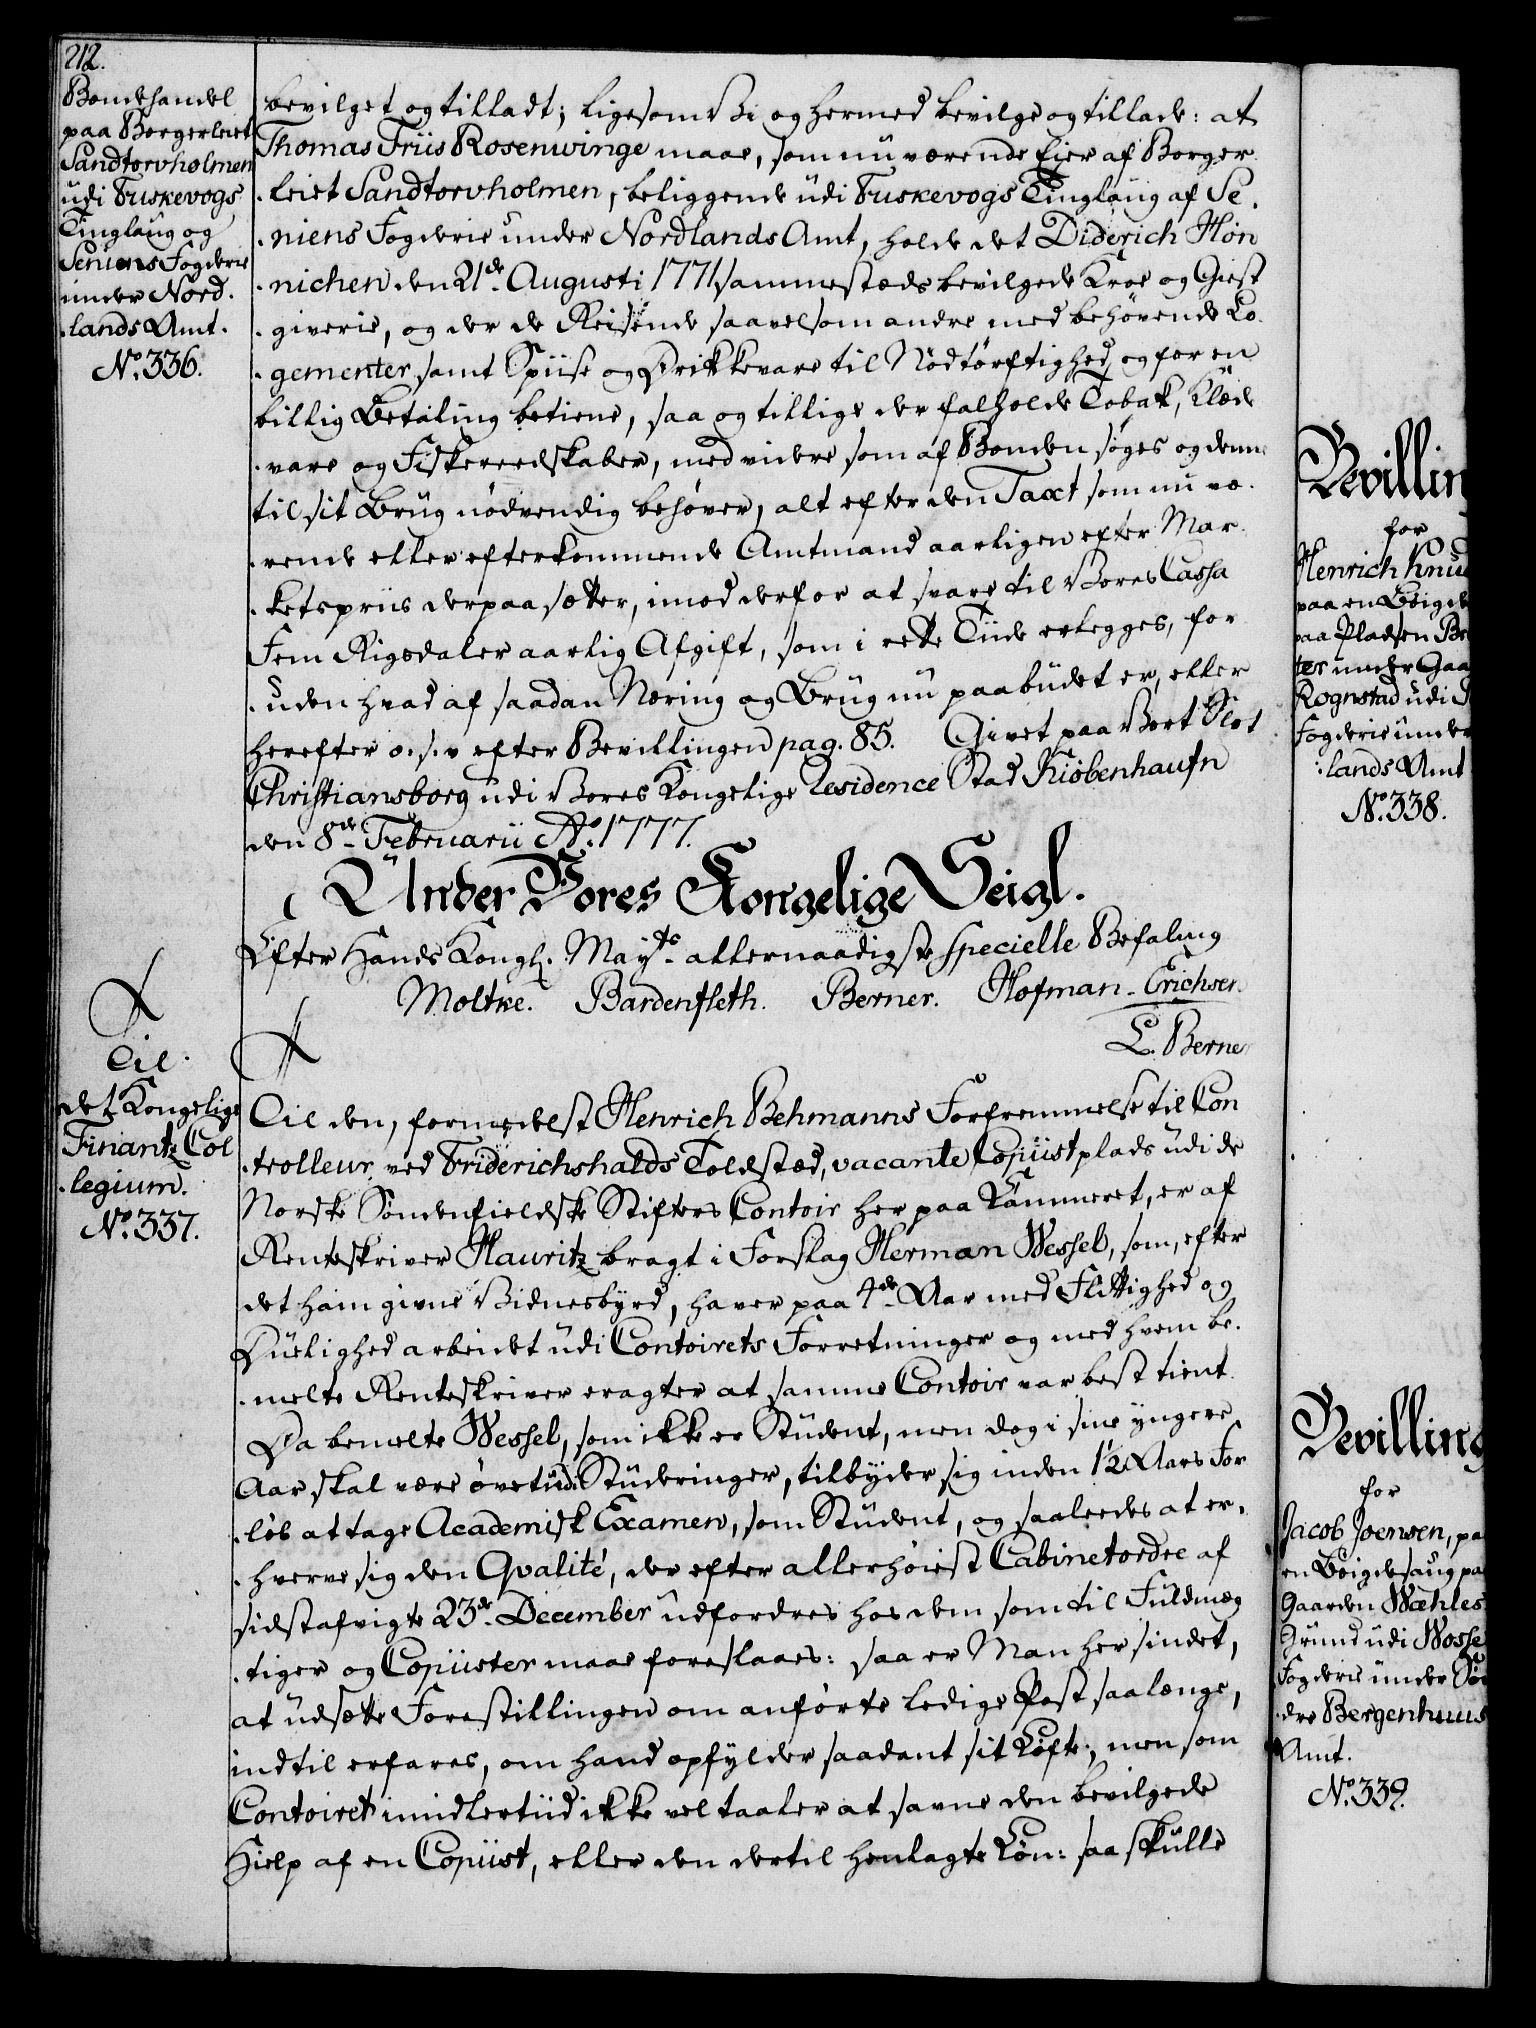 212.
Bondehandel
paa Borgerleiet
Sandtorvholmen
udi Fuskevogs
Tinglaug og
Seniens Fogderie
under Nord-
lands Amt.
No. 336.
bevilget og tilladt; ligesom Vi og hermed bevilge og tillade: at
Thomas Friis Rosenwinge maae, som nu værende Eier af Borger-
leiet Sandtorvholmen, beliggende udi Fuskevogs Tinglaug af Se-
niens Fogderie under Nordlands Amt, holde det Diderich Hön
nichen den 21de Augusti 1771 sammesteds bevilgede Kroe og Giest
giverie, og der de Reisende saavelsom andre med behøvende Lo-
gementer samt Spiise og Drikkevare til Nödtörftighed, og for en
billig Betaling betiene, saa og tillige der falholde Tobak, Klæde
vare og Fiskereedskaber, med videre som af Bonden søges og denne
til sit Brug nödvendig behøver, alt efter den Taxt som nu væ-
rende eller efterkommende Amtmand aarligen efter Mar-
ketspriis derpaa sætter, imod derfor at svare til Vores Cassa
Fem Rigsdaler aarlig Afgift, som i rette Tiide erlegges, for
uden hvad af saadan Næring og Brug nu paabudet er, eller
herefter o. s. v. efter Bevillingen pag. 85. Givet paa Vort Slot
Christiansborg udi Vores Kongelige Residence Stad Kiöbenhaufn
den 8de Februarii Ao. 1777.
Under Vores Kongelige Seigl.
Efter Hands Kongl. Mayts. allernaadigste specielle Befaling
Moltke. Bardenfleth. Berner. Hofman - Erichsen.
L. Berner
Til
det Kongelige
Finantz Col
legium.
No. 337.
Til den, formedelst Henrich Behmanns Forfremmelse til Con
trolleur ved Friderichshalds Toldsted, vacante Copiistplads udi de
Norske Söndenfieldske Stifters Contoir her paa Kammeret, er af
Renteskriver Hauritz bragt i Forslag Herman Wessel, som, efter
det ham givne Vidnesbyrd, haver paa 4de Aar med Flittighed og
Duelighed arbeidet udi Contoirets Forretninger og med hvem be-
melte Renteskriver eragter at samme Contoir var best tient.
Da bemelte Wessel, som ikke er Student, men dog i sine yngere
Aar skal være övet udi Studeringer, tilbyder sig inden 1½ Aars For
löb at tage Academisk Examen, som Student, og saaleedes at er-
hverve sig den Qvalité, der efter allerhöiest Cabinetordre af
sidstafvigte 23de December udfordres hos dem som til Fuldmæg
tiger og Copiister maae foreslaaes: saa er Man her sindet,
at udsætte Forestillingen om anförte ledige Post saalænge,
indtil erfares, om hand opfylder saadant sit Löfte; men som
Contoiret imidlertiid ikke vel taaler at savne den bevilgede
Hielp af en Copiist, eller den dertil henlagte Lön: saa skulle
Bevilling
for
Henrich Knud
paa en
paa Pladsen
under Gaa
Rognstad udi
Fogderie under
lands Amt
No. 338.
Bevilling
for
Jacob Joensen, pa
en Böigdesaug pa
Gaarden Wæhles
Grund udi Wosse
Fogderie under Sön
dre Bergenhuus
Amt.
No. 339.